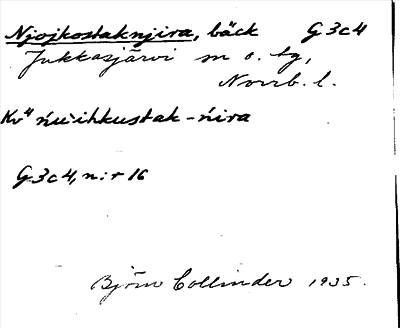 Njojkostaknjira, bäck G 3 c 4
Jukkasjärvi sn o. tg,
Norrb. l.
Kv" ńu'ihkustak-ńira
G 3 c 4, n:r 16
Björn Collinder 1935.